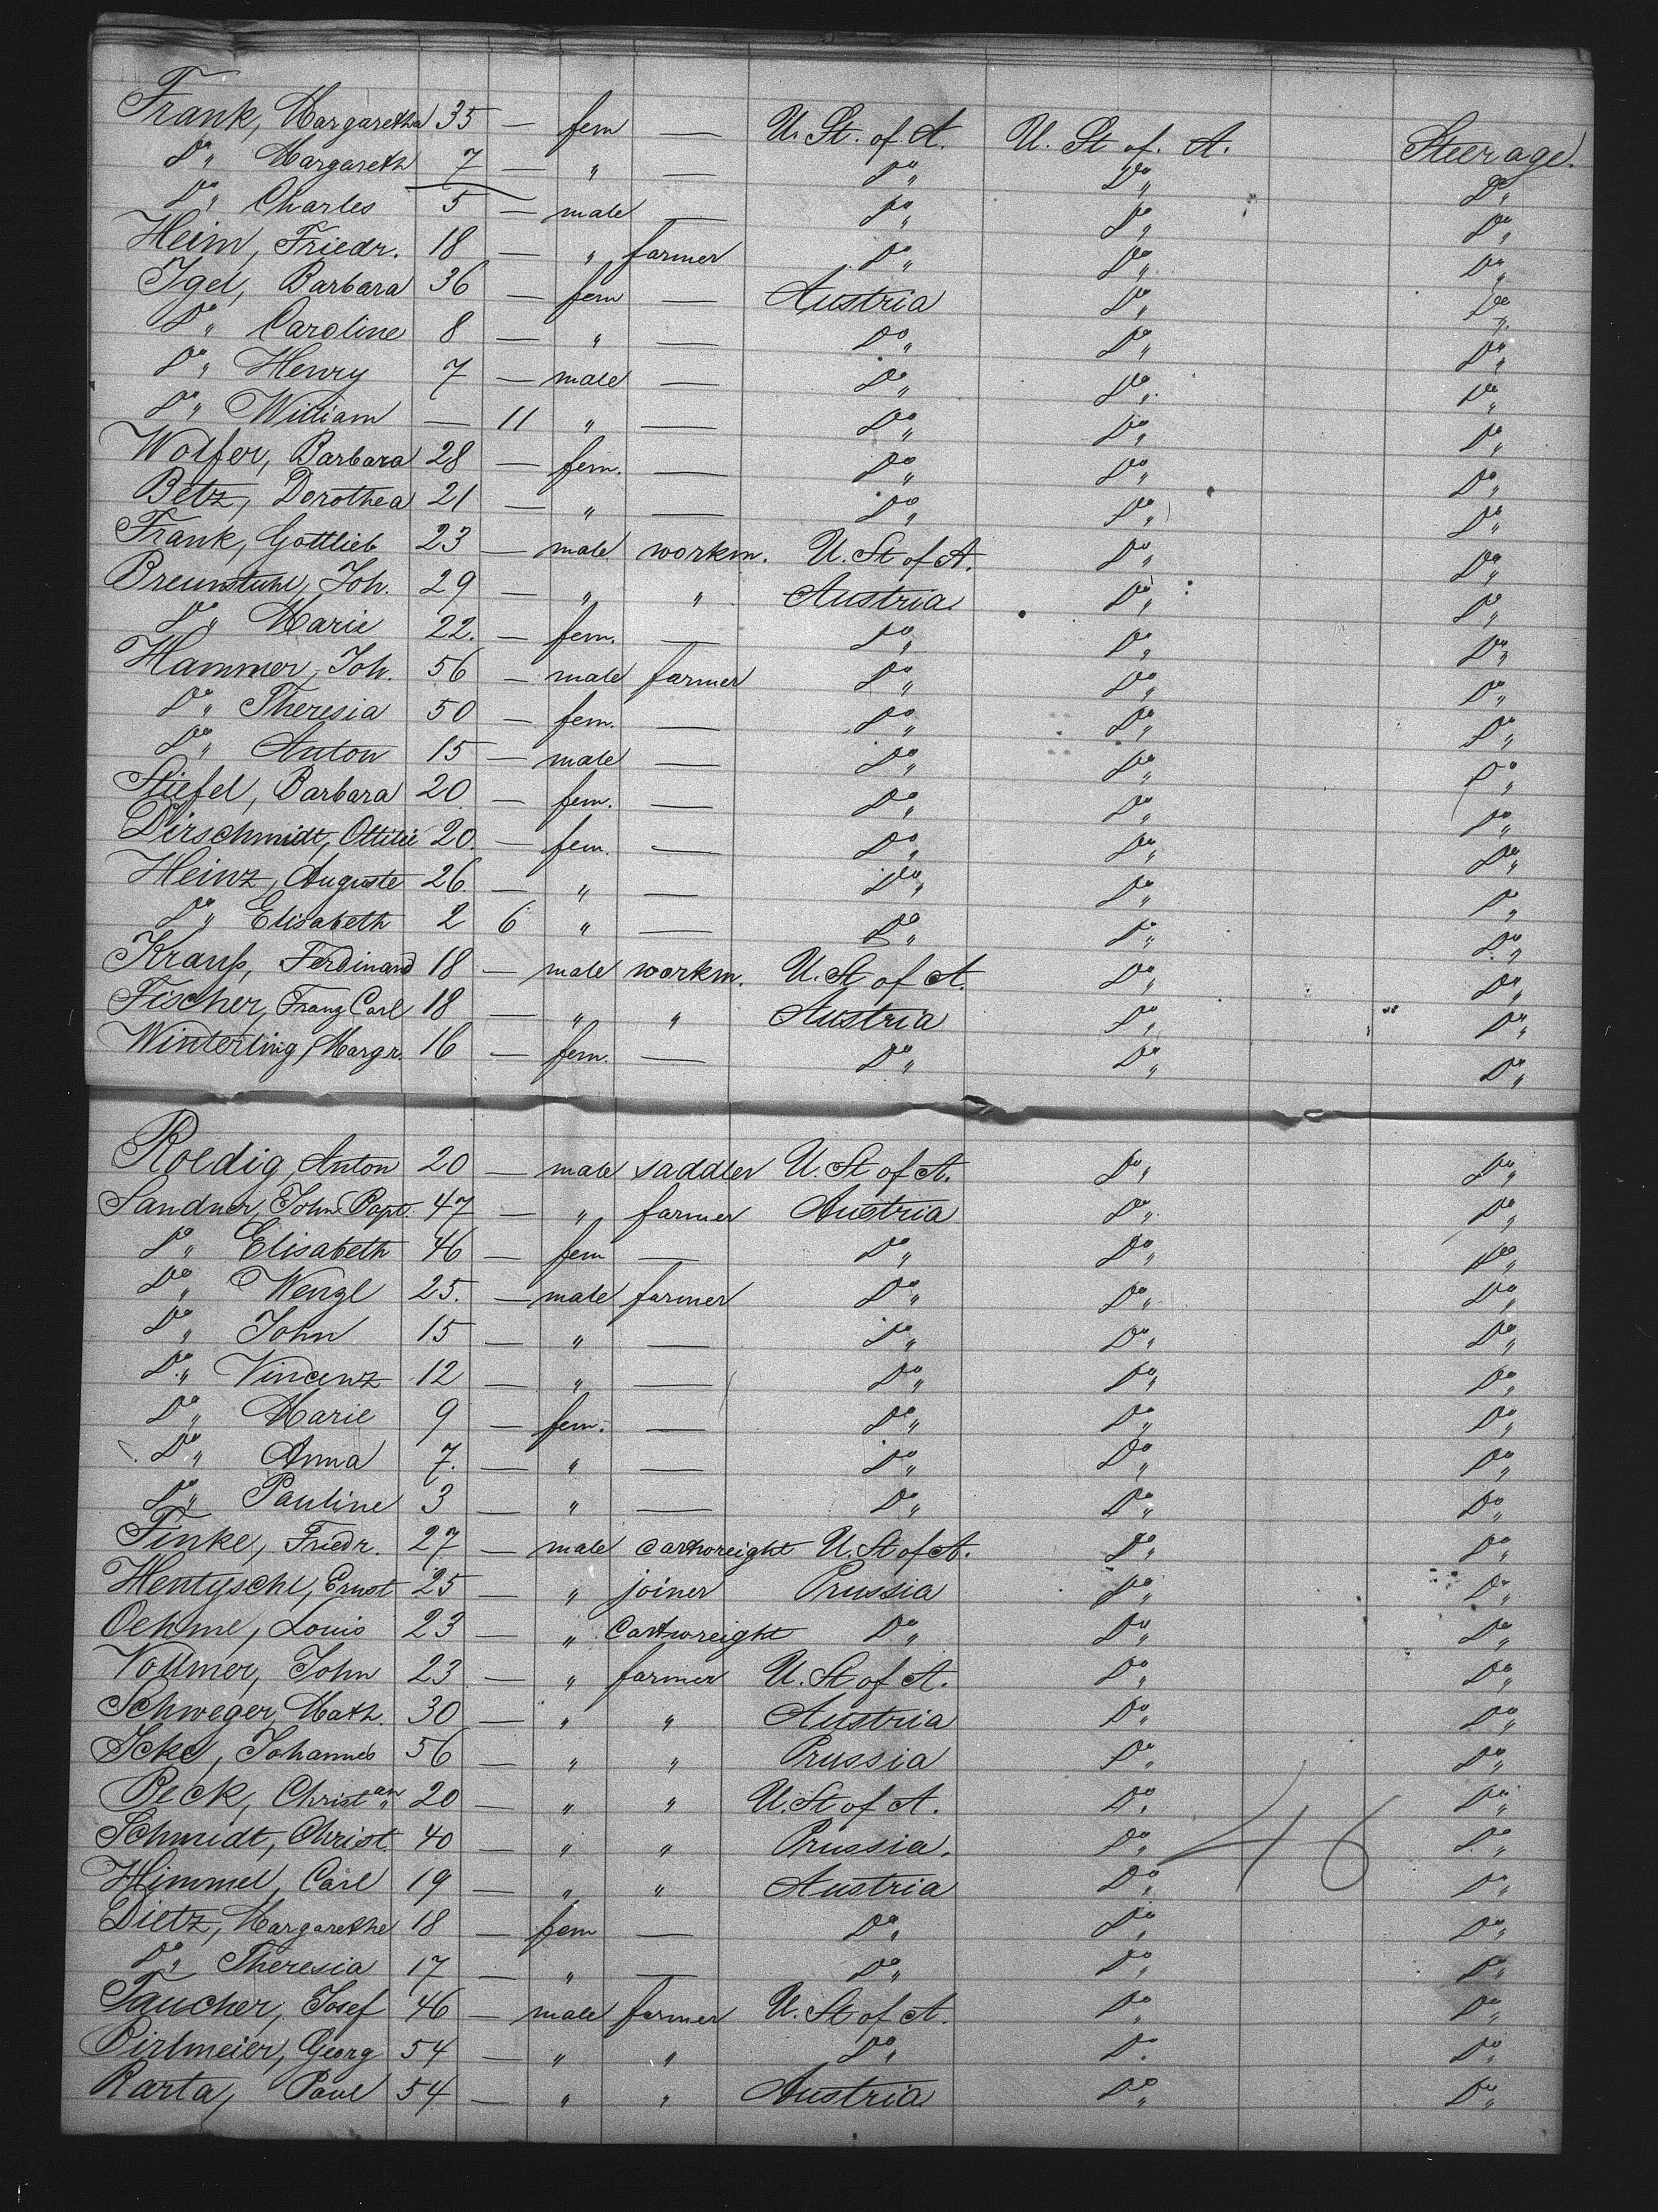 Frank, Margaretha 35 — fem — U. St. of A. U. St of. A. Steerage.
Do " Margareth 7 — " — Do " Do " Do "
Do " Charles 5 — male — Do " Do " Do "
Heim, Friedr. 18 — " farmer Do " Do " Do "
Igel, Barbara 36 — fem — Austria Do " Do "
Do " Caroline 8 — " — Do " Do " Do "
Do " Henry 7 — male — Do " Do " Do "
Do " William — 11 " — Do " Do " Do "
Wolfer, Barbara 28 — fem. — Do " Do " Do "
Betz, Dorothea 21 — " — Do " Do " Do "
Frank, Gottlieb 23 — male workm. U. St of A. Do " Do "
Breunstuhl, Joh. 29 — " " Austria Do " Do "
Do " Marie 22. — fem. — Do " Do " Do "
Hammer, Joh. 56 — male farmer Do " Do " Do "
Do " Theresia 50 — fem. — Do " Do " Do "
Do " Anton 15 — male — Do " Do " Do "
Stiefel, Barbara 20 — fem. — Do " Do " Do "
Dirschmidt, Ottilie 20 — fem. — Do " Do " Do "
Heinz, Auguste 26. — " — Do " Do " Do "
Do " Elisabeth 2 6 " — Do " Do " Do "
Krauß, Ferdinand 18 — male workm. U. St of A. Do " Do "
Fischer, Franz Carl 18 — " " Austria Do " Do "
Winterling, Margr. 16 — fem. — Do " Do " Do "
Roedig, Anton 20 — male saddler U. St of A. Do " Do "
Sandner, John Bapt. 47 — " farmer Austria Do " Do "
Do " Elisabeth 46 — fem — Do " Do " Do "
Do " Wenzl 25. — male farmer Do " Do " Do "
Do " John 15 — " — Do " Do " Do "
Do " Vincenz 12 — " — Do " Do " Do "
Do " Marie 9 — fem. — Do " Do " Do "
Do " Anna 7. — " — Do " Do " Do "
Do " Pauline 3 — " — Do " Do " Do "
Finke, Friedr. 27 — male cartwreight U. St of A. Do " Do "
Hentzschl, Ernst 25 — " joiner Prussia Do " Do "
Oehme, Louis 23 — " Cartwreight Do " Do " Do "
Vollmer, John 23 — " farmer U. St of A. Do " Do "
Schweger, Math. 30 — " " Austria Do " Do "
Icke, Johannes 56 — " " Prussia Do " Do "
Beck, Christ an " 20 — " " U. St of A. Do " Do "
Schmidt, Christ. 40 — " " Prussia. Do " 46 Do "
Himmel, Carl 19 — " " Austria Do " Do "
Dietz, Margarethe 18 — fem — Do " Do " Do "
Do " Theresia 17 — " — Do " Do " Do "
Taucher, Josef 46 — male farmer U. St of A. Do " Do "
Pirlmeier, Georg 54 — " " Do " Do. Do "
Barta, Paul 54 — " " Austria Do " Do "